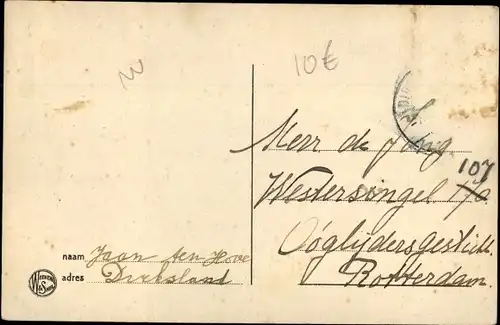 10€
Merr de Jong
107
Westersingel 170
Ooglijdersgesticht.
Rotterdam.
naam Jaan ten Hove
adres Dirksland